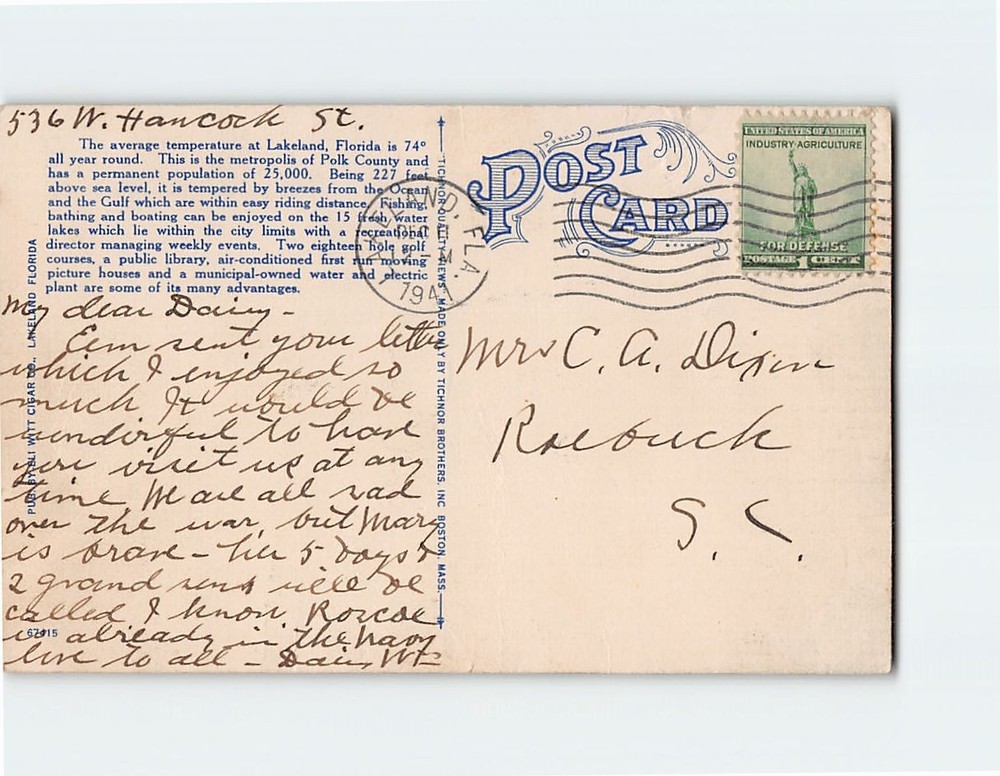 536 W. Hancock St.
The average temperature at Lakeland, Florida is 74°
all year round. This is the metropolis of Polk County and
has a permanent population of 25,000. Being 227 feet
above sea level, it is tempered by breezes from the Ocean
and the Gulf which are within easy riding distance. Fishing,
bathing and boating can be enjoyed on the 15 fresh water
lakes which lie within the city limits with a recreational
director managing weekly events. Two eighteen hole golf
courses, a public library, air-conditioned first run moving
picture houses and a municipal-owned water and electric
plant are some of its many advantages.
My dear Daisy-
Eem sent your letter
which I enjoyed so
much. It would be
wonderful to have
you visit us at any
time We are all sad
over the war, but Mary
is brave - her 5 boys &
2 grand sons will be
called I know, Roscoe
is already in the Navy
love to all - Daisy
67415
PUB. BY ELI WITT CIGAR CO., LAKELAND FLORIDA
TICHNOR QUALITY VIEWS, MADE ONLY BY TICHNOR BROTHERS, INC BOSTON, MASS.
POST
CARD
LAKELAND, FLA.
DEC 11
1941
UNITED STATES OF AMERICA
INDUSTRY·AGRICULTURE
FOR DEFENSE
POSTAGE 1 CENT
Mrs C. A. Dixon
Roebuck
S. C.